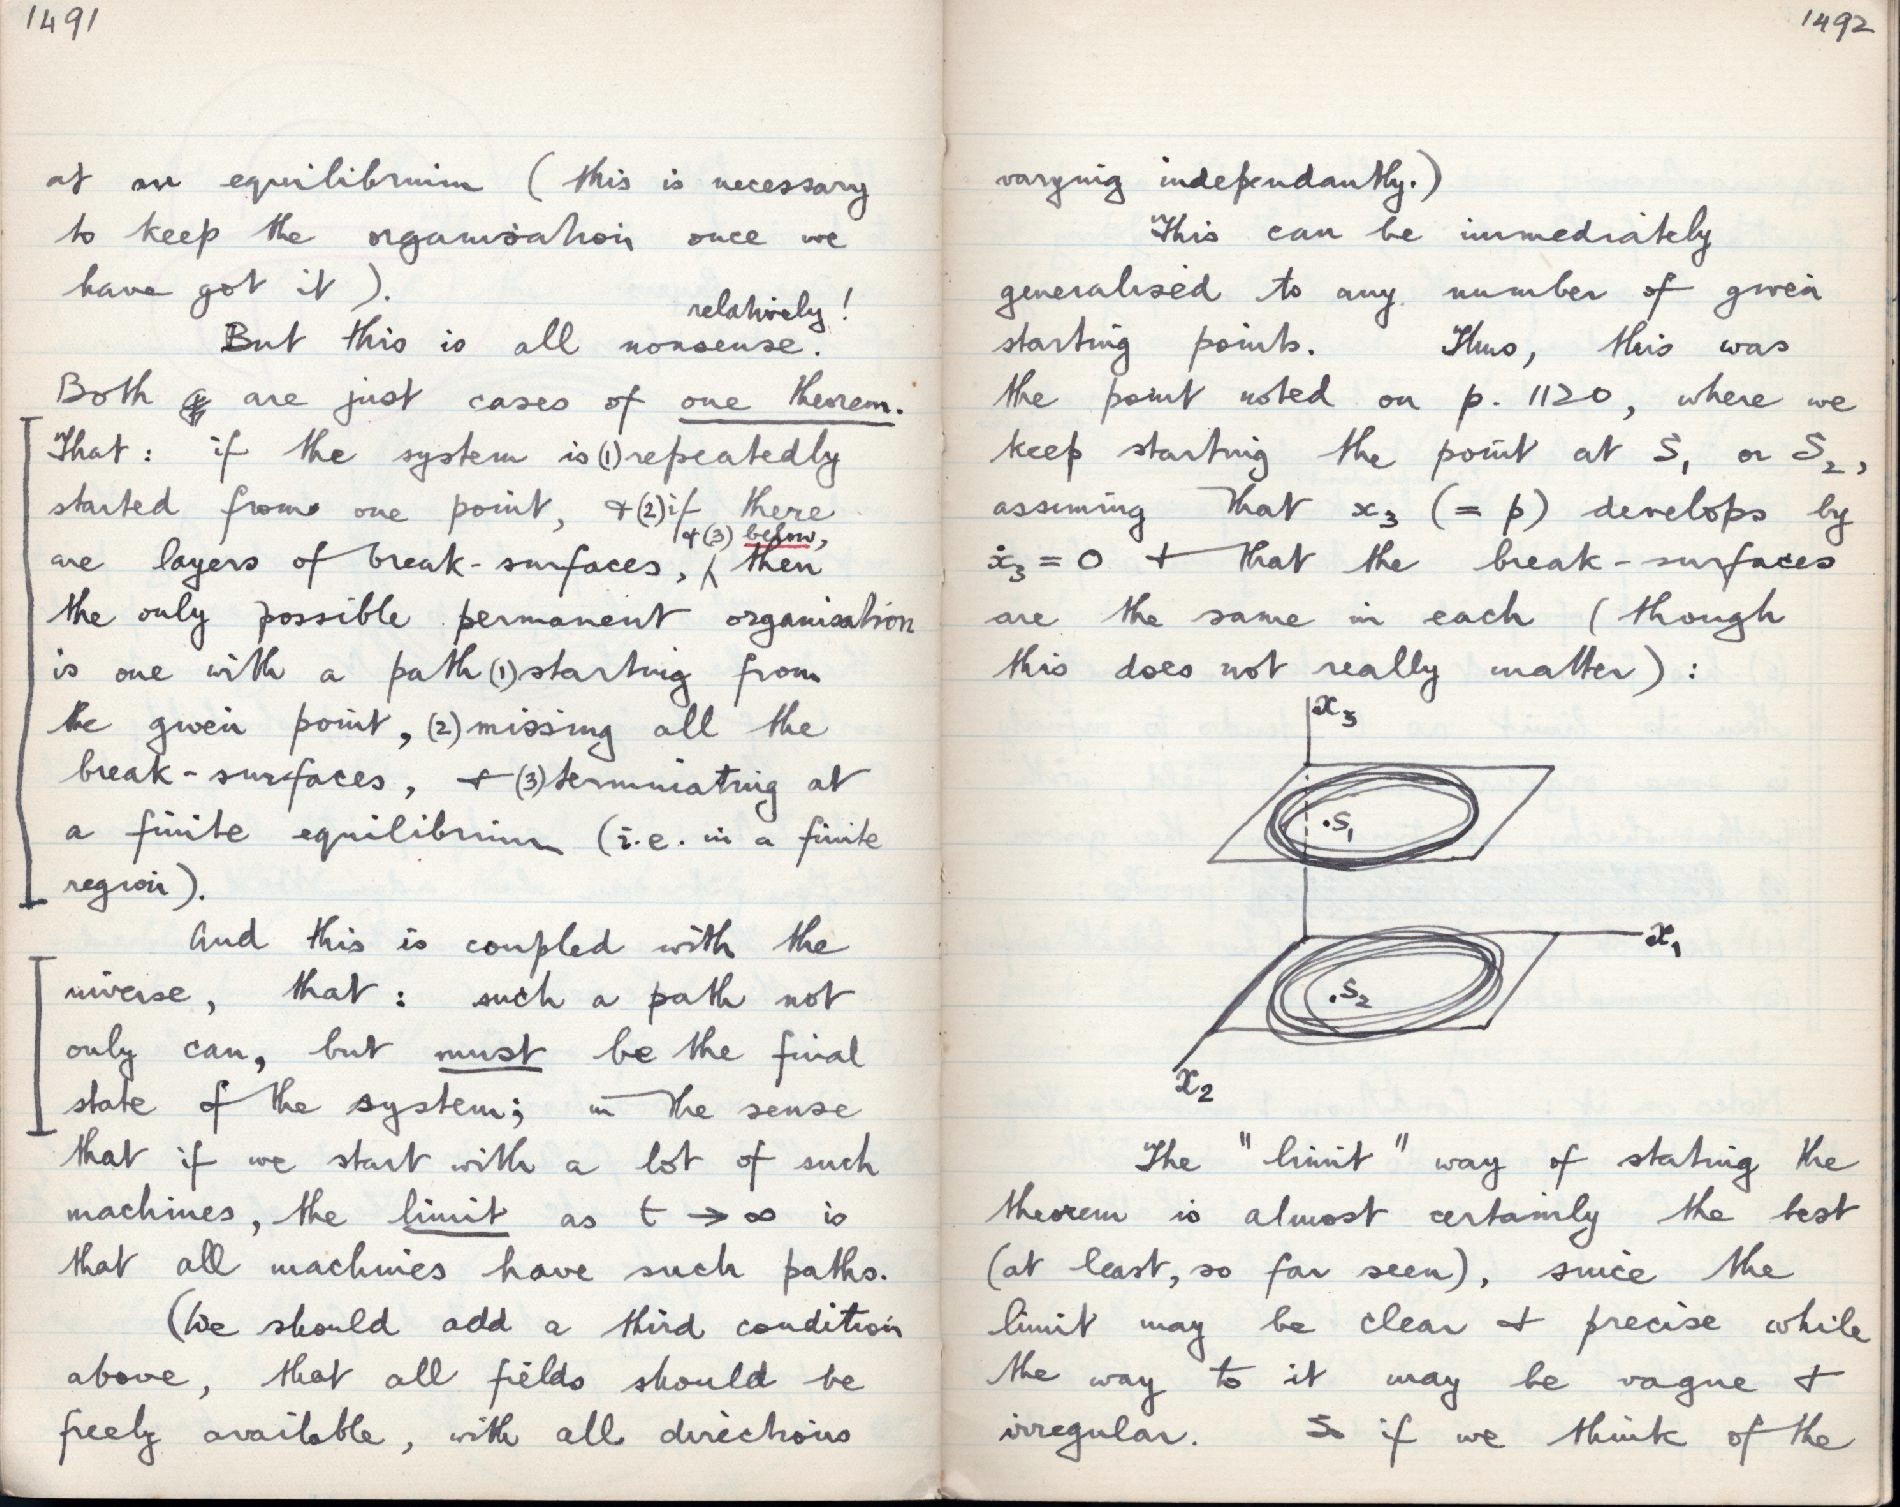 1491
at an equilibrium (this is necessary
to keep the organisation once we
have got it).
relatively!
But this is all nonsense.
Both are just cases of one theorem.
That: if the system is (1) repeatedly
started from one point, & (2) if there
& (3) below,
are layers of break-surfaces, then
the only possible permanent organisation
is one with a path (1) starting from
the given point, (2) missing all the
break-surfaces, & (3) terminating at
a finite equilibrium (i.e. in a finite
region).
And this is coupled with the
inverse, that: such a path not
only can, but must be the final
state of the system; in the sense
that if we start with a lot of such
machines, the limit as t → ∞ is
that all machines have such paths.
(We should add a third condition
above, that all fields should be
freely available, with all directions
1492
varying independantly.)
This can be immediately
generalised to any number of given
starting points. Thus, this was
the point noted on p. 1120, where we
keep starting the point at S₁ or S₂,
assuming that x₃ (= p) develops by
ẋ₃ = 0 & that the break-surfaces
are the same in each (though
this does not really matter):
x₃
.S₁
x₁
.S₂
x₂
The "limit" way of stating the
theorem is almost certainly the best
(at least, so far seen), since the
limit may be clear & precise while
the way to it may be vague &
irregular. So if we think of the